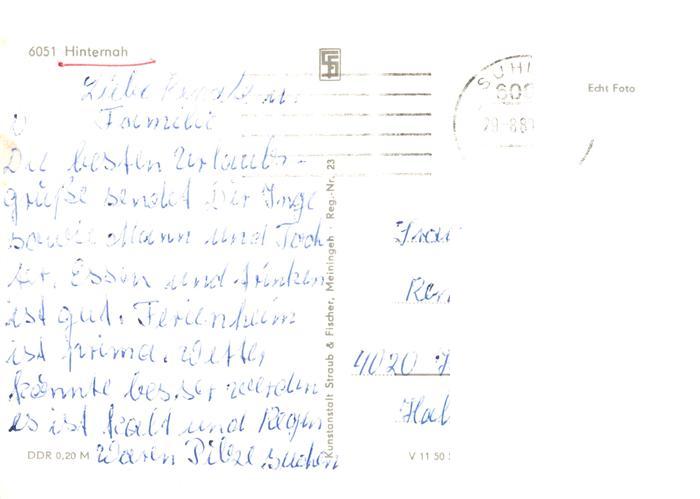 6051 Hinternah
Liebe Renate u.
Familie
Die besten Urlaubs-
grüße sendet Dir Inge
sowie Mann und Toch
ter. Essen und trinken
ist gut. Ferienheim
ist prima. Wetter
könnte besser werden
es ist kalt und Regen
Waren Pilze suchen
DDR 0,20 M
Kunstanstalt Straub & Fischer, Meiningen · Reg.-Nr. 23
SUHL
Echt Foto
Frau
4020
V 11 50